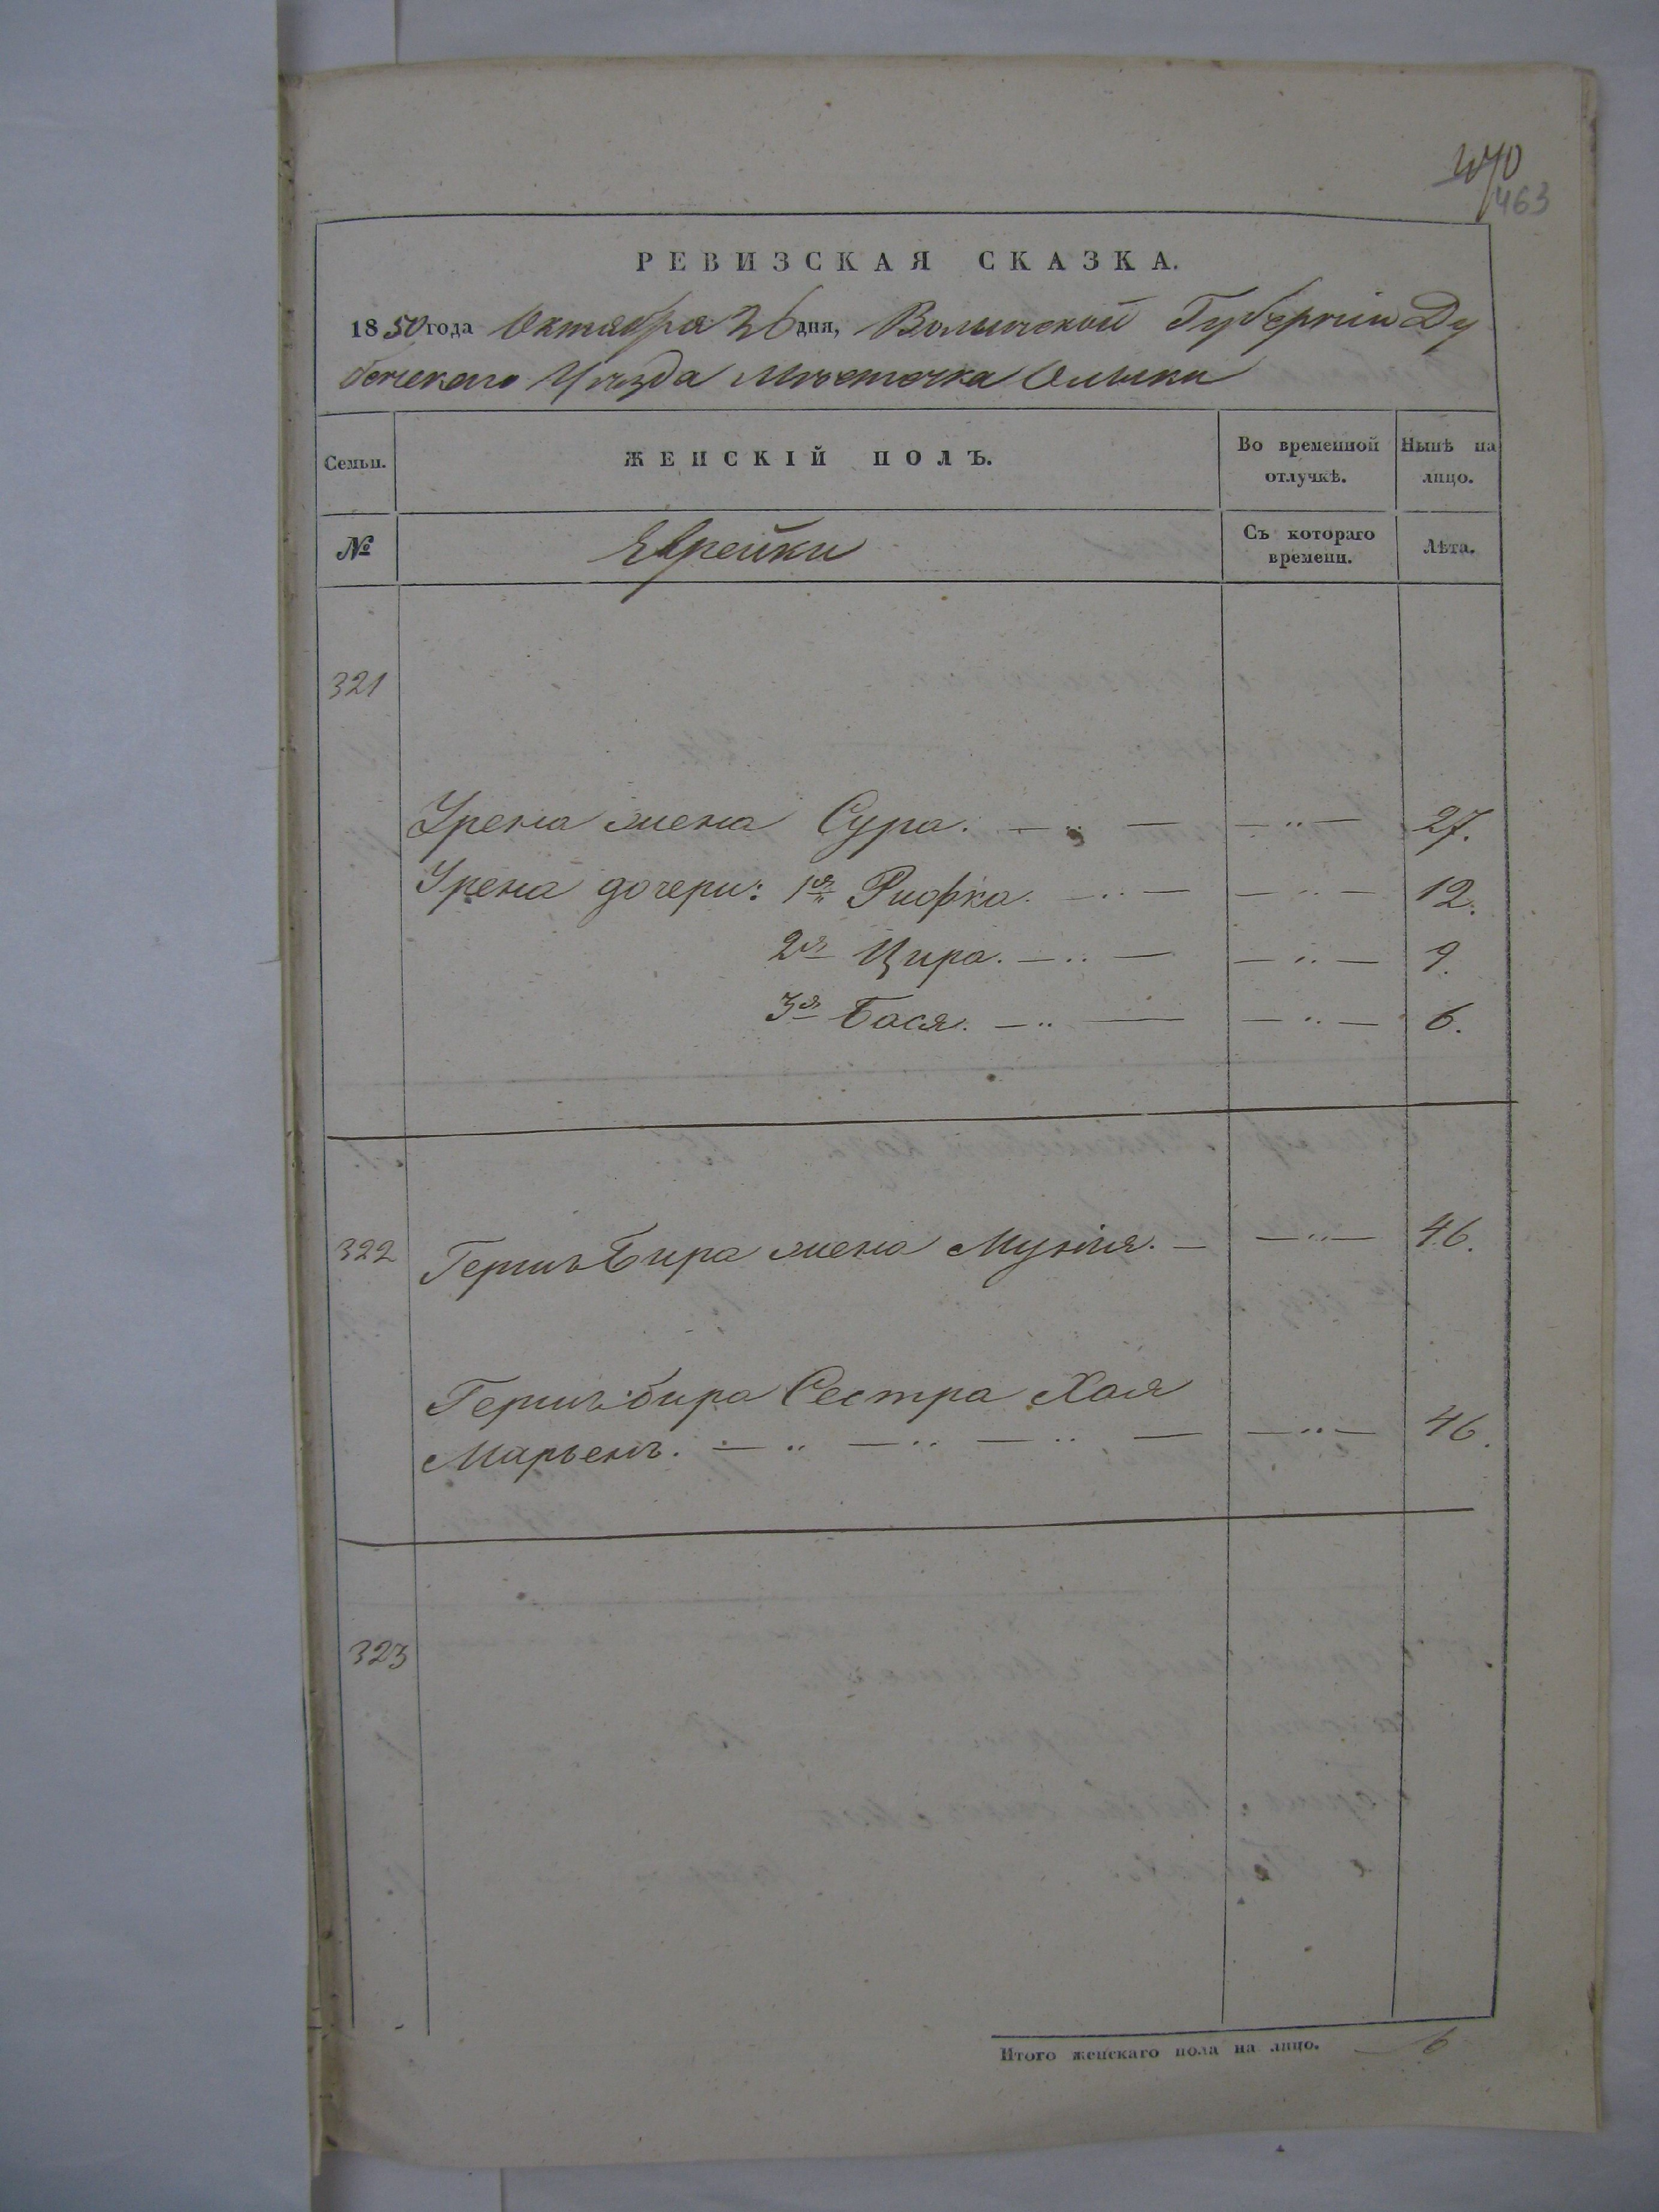 470
463
РЕВИЗСКАЯ СКАЗКА.
1850 года Октября 26 дня, Волынской Губернiи Ду
бенскаго Уѣзда Мѣстечка Олыки
Семьи.
ЖЕНСКІЙ ПОЛЪ.
Во временной отлучкѣ.
Нынѣ на лицо.
№
Еврейки
Съ котораго времени.
Лѣта.
321
Урена жена Сура. — „ — — „ — 27.
Урена дочери: 1я Рифка. — „ — — „ — 12.
2я Цира. — „ — — „ — 9.
3я Бася. — „ — — „ — 6.
322 Гершъ Бира жена — — „ — 46.
Гершъ бира Сестра Хая
Марьемъ. — „ — „ — „ — — „ — 46.
323
Итого женскаго пола на лицо. 6